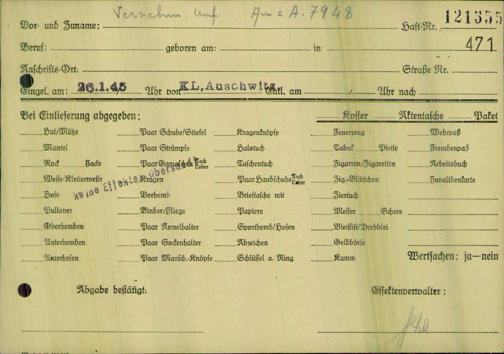 Vor- und Zuname: A. 7948 Haft-Nr. 121355
Beruf: geboren am: in: 471
Anschrifts-Ort: Straße Nr.
Eingel. am: 26.1.45 Uhr von KL. Auschwitz Entl. am Uhr nach
Bei Einlieferung abgegeben: Koffer Aktentasche Paket
Hut/Mütze Paar Schuhe/Stiefel Kragenknöpfe Feuerzeug Wehrpaß
Mantel Paar Strümpfe Halstuch Tabak Pfeife Fremdenpaß
Rock Jacke Paar Gamaschen Tuch Leder Taschentuch Zigarren/Zigaretten Arbeitsbuch
Weste/Kletterweste Kragen Paar Handschuhe Tuch Leder Zig.-Blättchen Invalidenkarte
keine Effekten übersandt
Hose Vorhemd Brieftasche mit Ziertuch
Pullover Binder/Fliege Papiere Messer Schere
Oberhemden Paar Ärmelhalter Sporthemd/Hosen Bleistift/Drehblei
Unterhemden Paar Sockenhalter Abzeichen Geldbörse
Unterhosen Paar Mansch.-Knöpfe Schlüssel a. Ring Kamm
Wertsachen: ja—nein
Abgabe bestätigt: Effektenverwalter: